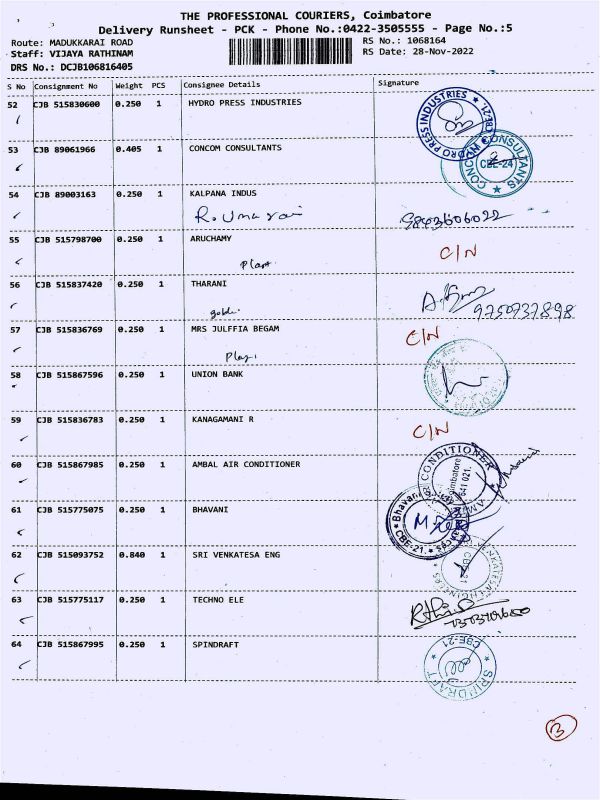 THE PROFESSIONAL COURIERS, Coimbatore
Delivery Runsheet - PCK - Phone No.:0422-3505555 - Page No.:5
Route: MADUKKARAI ROAD
RS No.: 1068164
Staff: VIJAYA RATHINAM
RS Date: 28-Nov-2022
DRS No.: DCJB106816405
S No Consignment No Weight PCS Consignee Details Signature
52 CJB 515830600 0.250 1 HYDRO PRESS INDUSTRIES
HYDRO PRESS INDUSTRIES CBE-21
53 CJB 89061966 0.405 1 CONCOM CONSULTANTS
CONCOM CONSULTANTS CBE-24
54 CJB 89003163 0.250 1 KALPANA INDUS
9843606022
55 CJB 515798700 0.250 1 ARUCHAMY
C/N
56 CJB 515837420 0.250 1 THARANI
9750737898
57 CJB 515836769 0.250 1 MRS JULFFIA BEGAM
C/N
58 CJB 515867596 0.250 1 UNION BANK
59 CJB 515836783 0.250 1 KANAGAMANI R
C/N
60 CJB 515867985 0.250 1 AMBAL AIR CONDITIONER
CONDITIONER
Coimbatore
641 021.
61 CJB 515775075 0.250 1 BHAVANI
Bhavani
CBE-21.
62 CJB 515093752 0.840 1 SRI VENKATESA ENG
63 CJB 515775117 0.250 1 TECHNO ELE
64 CJB 515867995 0.250 1 SPINDRAFT
CBE-21
SPINDRAFT
3